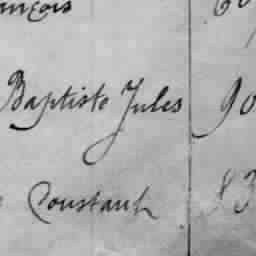 ançois 60
Baptiste Jules 90
Constant 83